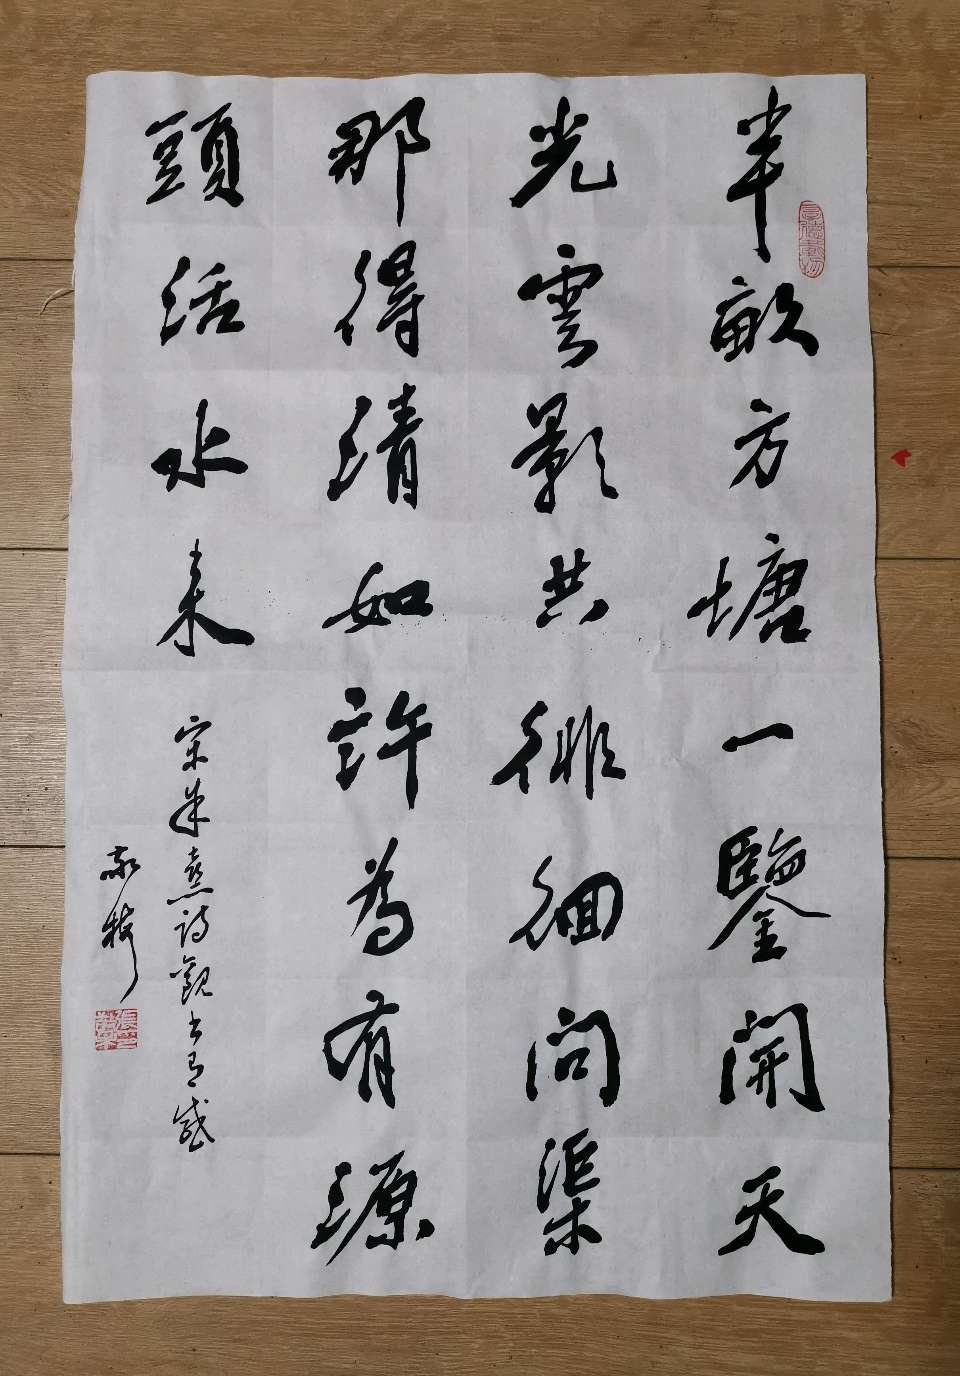 半畝方塘一鑒開天
光雲影共徘徊問渠
那得清如許為有源
頭活水来
宋朱熹詩觀书有感